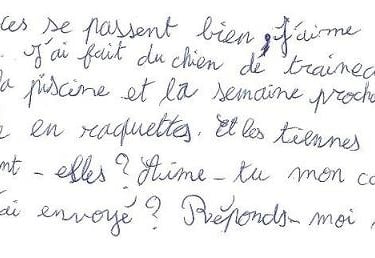 ces se passent bien, j'aime
. J'ai fait du chien de trainea
la piscine et la semaine proch
e en raquettes. Et les tiennes
nt-elles? Aime-tu mon ca
ai envoyé? Réponds-moi